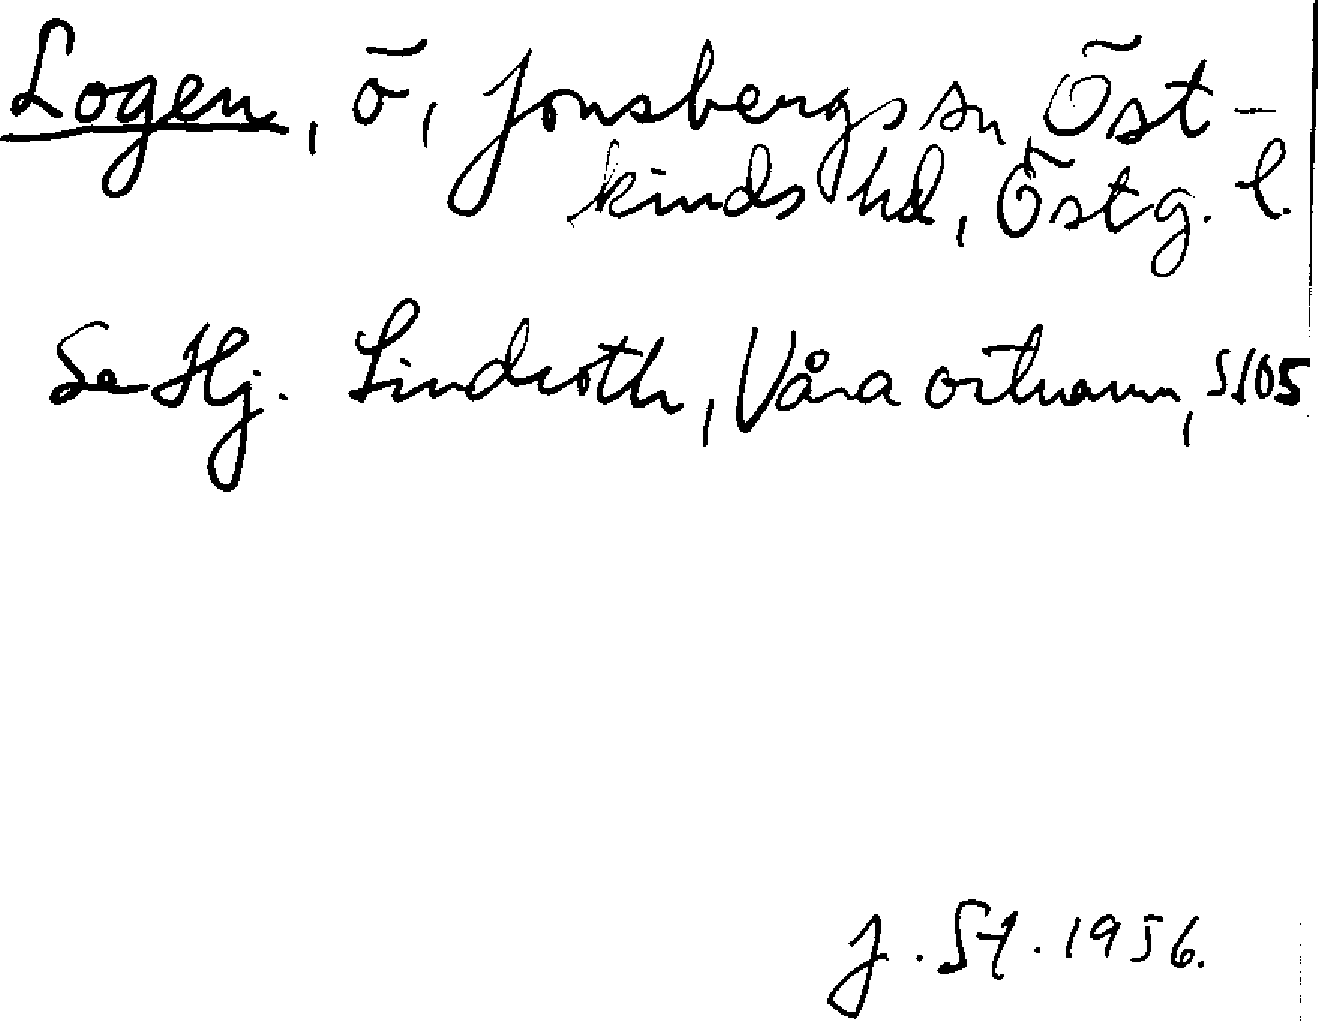 Logen, ö, Jonsbergs sn, Öst-
kinds hd, Östg. l.
Se Hj. Lindroth, Våra ortnamn, s105
J. St. 1956.